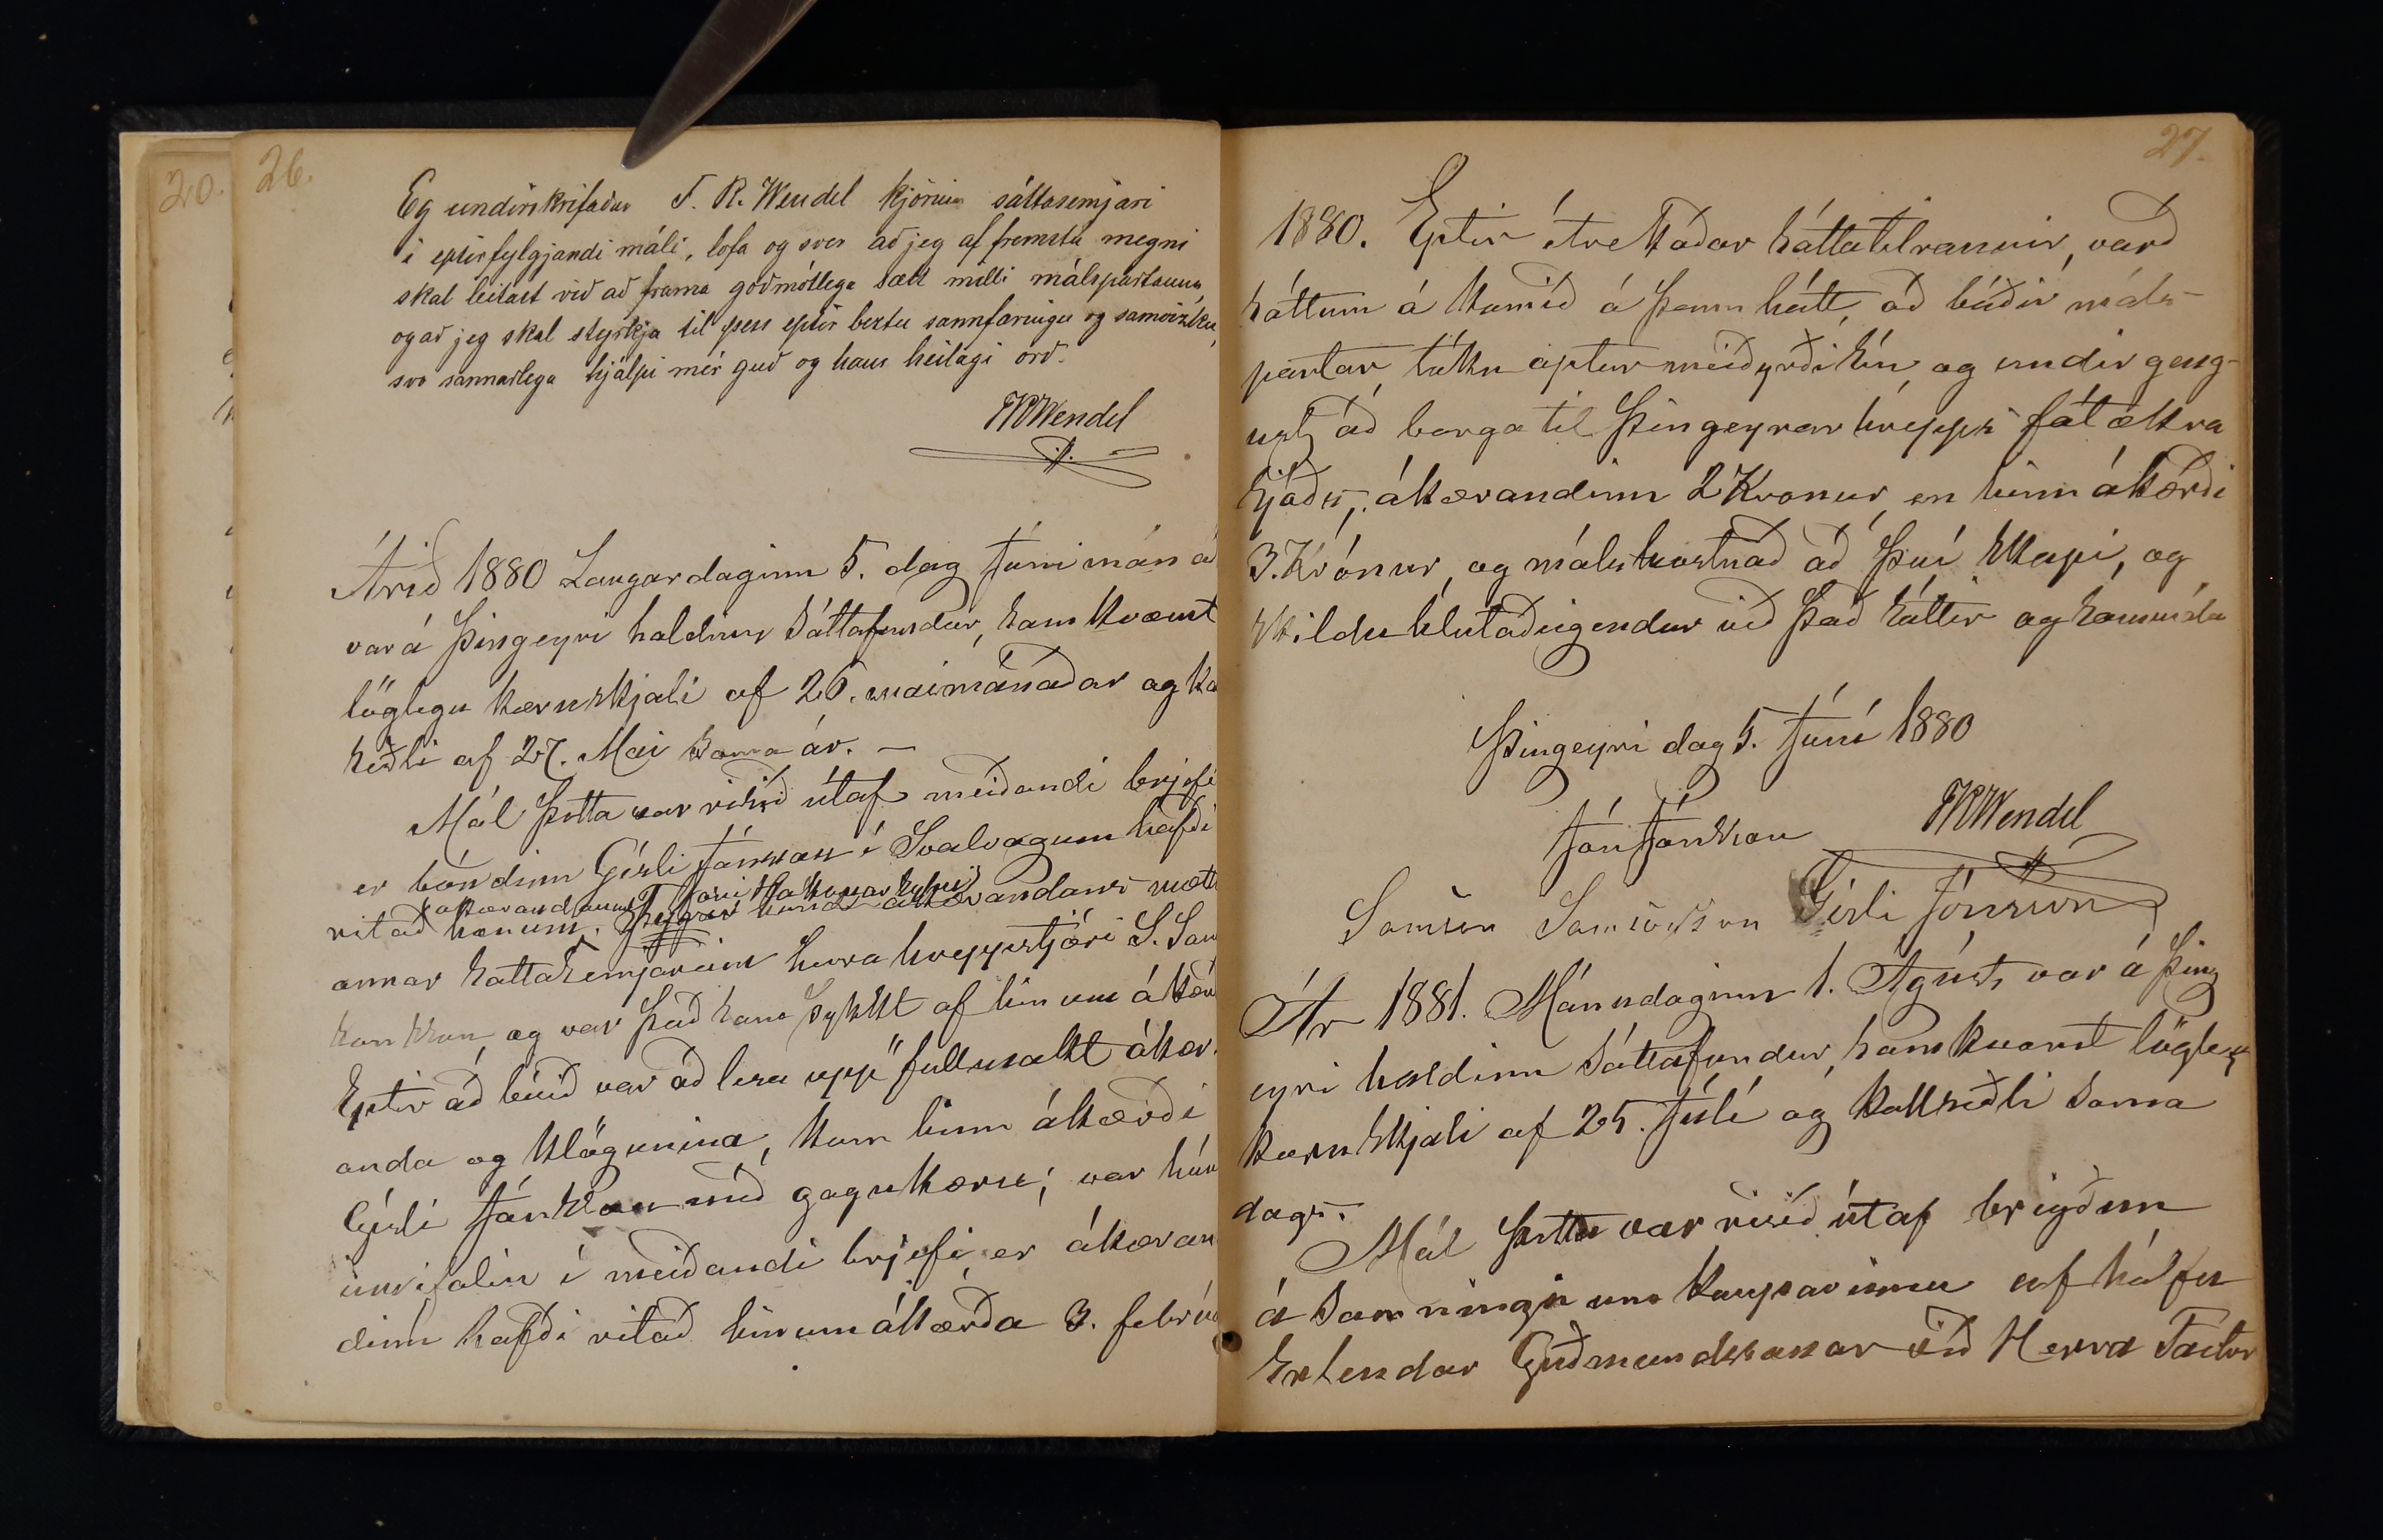 20.
26.
Eg undirskrifaður F. R. Wendel kjörinn sáttasemjari
í eptirfylgjandi máli, lofa og sver að jeg af fremsta megni
skal leitast við að frama góðmótlega sætt milli málspartanna
og að jeg skal styrkja til þess eptir beztu sannfæringu og samvizku,
svo sannarlega hjálpi mér guð og hans heilagi orð.
FRWendel
Árið 1880 Laugardaginn 5. dag Júni mán á
var á Þingeyri haldinn Sáttafundur, samkvæmt
löglegu kæruskjali af 26. maimánaðar og ka
seðli af 27. Mai sama ár. —
Mál þetta var risið útaf meiðandi brjefi
er bóndinn Gísli Jónsson í Svalvogum hafði
ákærandanum Jóni Hákonarsyni
ritað honum. ákærandans mætt
annar sáttasemjarinn herra hreppstjóri S. Sam
sonsson og var það hans sykkt af hinum ákær
Eptir að búið var að lesa upp fullmakt ákær.
anda og klögunina, kom hinn ákærði
Gísli Jónsson með gagnkæru; var hún
innifalin í meiðandi brjefi er ákæran
dinn hafði ritað hinum ákærða 3. febrúa
27.
1880. Eptir ítrekaðar sáttatilraunir, varð
sáttum á komið á þann hátt, að báðir máls-
partar, tóku aptur meiðyrði sín, og undir geng-
ust að borga til Þingeyrarhrepps fátækra
sjóðs, ákærandinn 2 Kronur, en hinn ákærði
3. Krónur, og málskostnað að því skapi, og
skildu hlutaðeigendur við það sáttir og samm
Þingeyri dag 5. Júní 1880
Jón Jónsson FRWendel
Samson Samsonsson Gísli Jónsson
Ár 1881. Mánudaginn 1. Ágúst, var á Þing
eyri haldinn Sáttafundur, samkvæmt löglegu
kæruskjali af 25. Júlí og kallseðli sama
dags.
Mál þetta var risið útaf brigðum
á samningi um kaupsavinnu af hálfu
Erlendar Guðmundssonar við Herra Factor